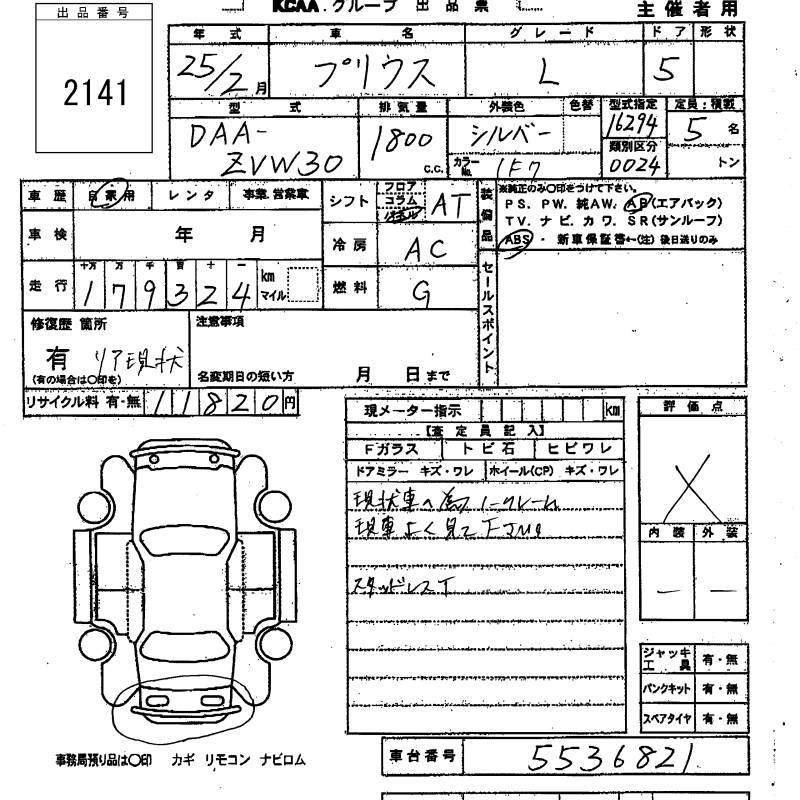 出品番号
2141
KCAA.グループ 出品票
主催者用
年式 車名 グレード ドア 形状
25/2月 プリウス L 5
型式 排気量 外装色 色替 型式指定 定員:積載
DAA-ZVW30 1800 c.c. シルバー 16294 5名
カラーNo. 1F7 類別区分 0024 トン
車歴 自家用 レンタ 事業.営業車
車検 年 月
走行 十万 万 千 百 十 一
179324 km マイル
シフト フロア コラム パネル AT
冷房 AC
燃料 G
装備品
※純正のみ〇印をつけて下さい。
PS. PW. 純AW. AB(エアバック)
TV. ナビ. カワ. SR(サンルーフ)
ABS・ 新車保証書←(注)後日送りのみ
セールスポイント
修復歴 箇所
有 リア現状
(有の場合は〇印を)
注意事項
名変期日の短い方 月 日まで
リサイクル料 有・無 11820円
現メーター指示 km
【査定員記入】
Fガラス トビ石 ヒビワレ
ドアミラー キズ・ワレ ホイール(CP) キズ・ワレ
現状車の為ノークレーム
現車よく見て下さい
スタッドレスT
評価点
X
内装 外装
— —
ジャッキ工具 有・無
パンクキット 有・無
スペアタイヤ 有・無
事務局預り品は〇印 カギ リモコン ナビロム
車台番号 5536821